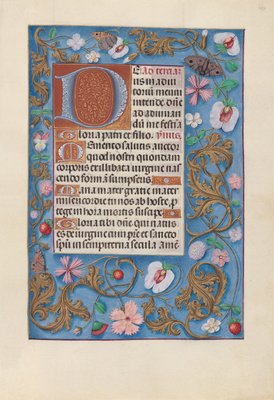 DE ad tercia
us in adiu
toriũ meũ
intende. dñe
ad adiuuan
dũ me festia
Gloria patri et filio. Ymus.
Memento salutis auctor
quod nostri quondam
corporis ex illibata virgine nas
cendo formã sumpseris.
Maria mater gratie mater
misericordie tu nos ab hoste p
tege in hora mortis suscipe.
Gloria tibi dñe qui natus
es de virgine cum patre et sancto
spũ in sempiterna secula amẽ